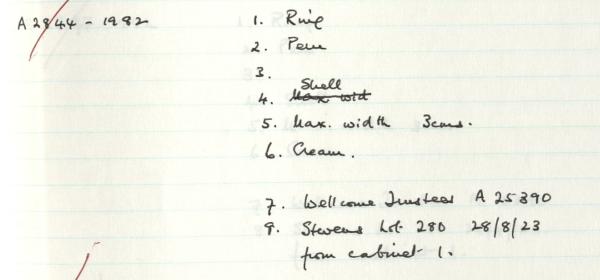 A 2844 - 1982
1. Ring
2. Peru
3.
Shell
4. Max. wid
5. Max. width 3cms.
6. Cream.
7. Wellcome Trustees A 25390
8. Stevens Lot 280 28/8/23
from cabinet 1.